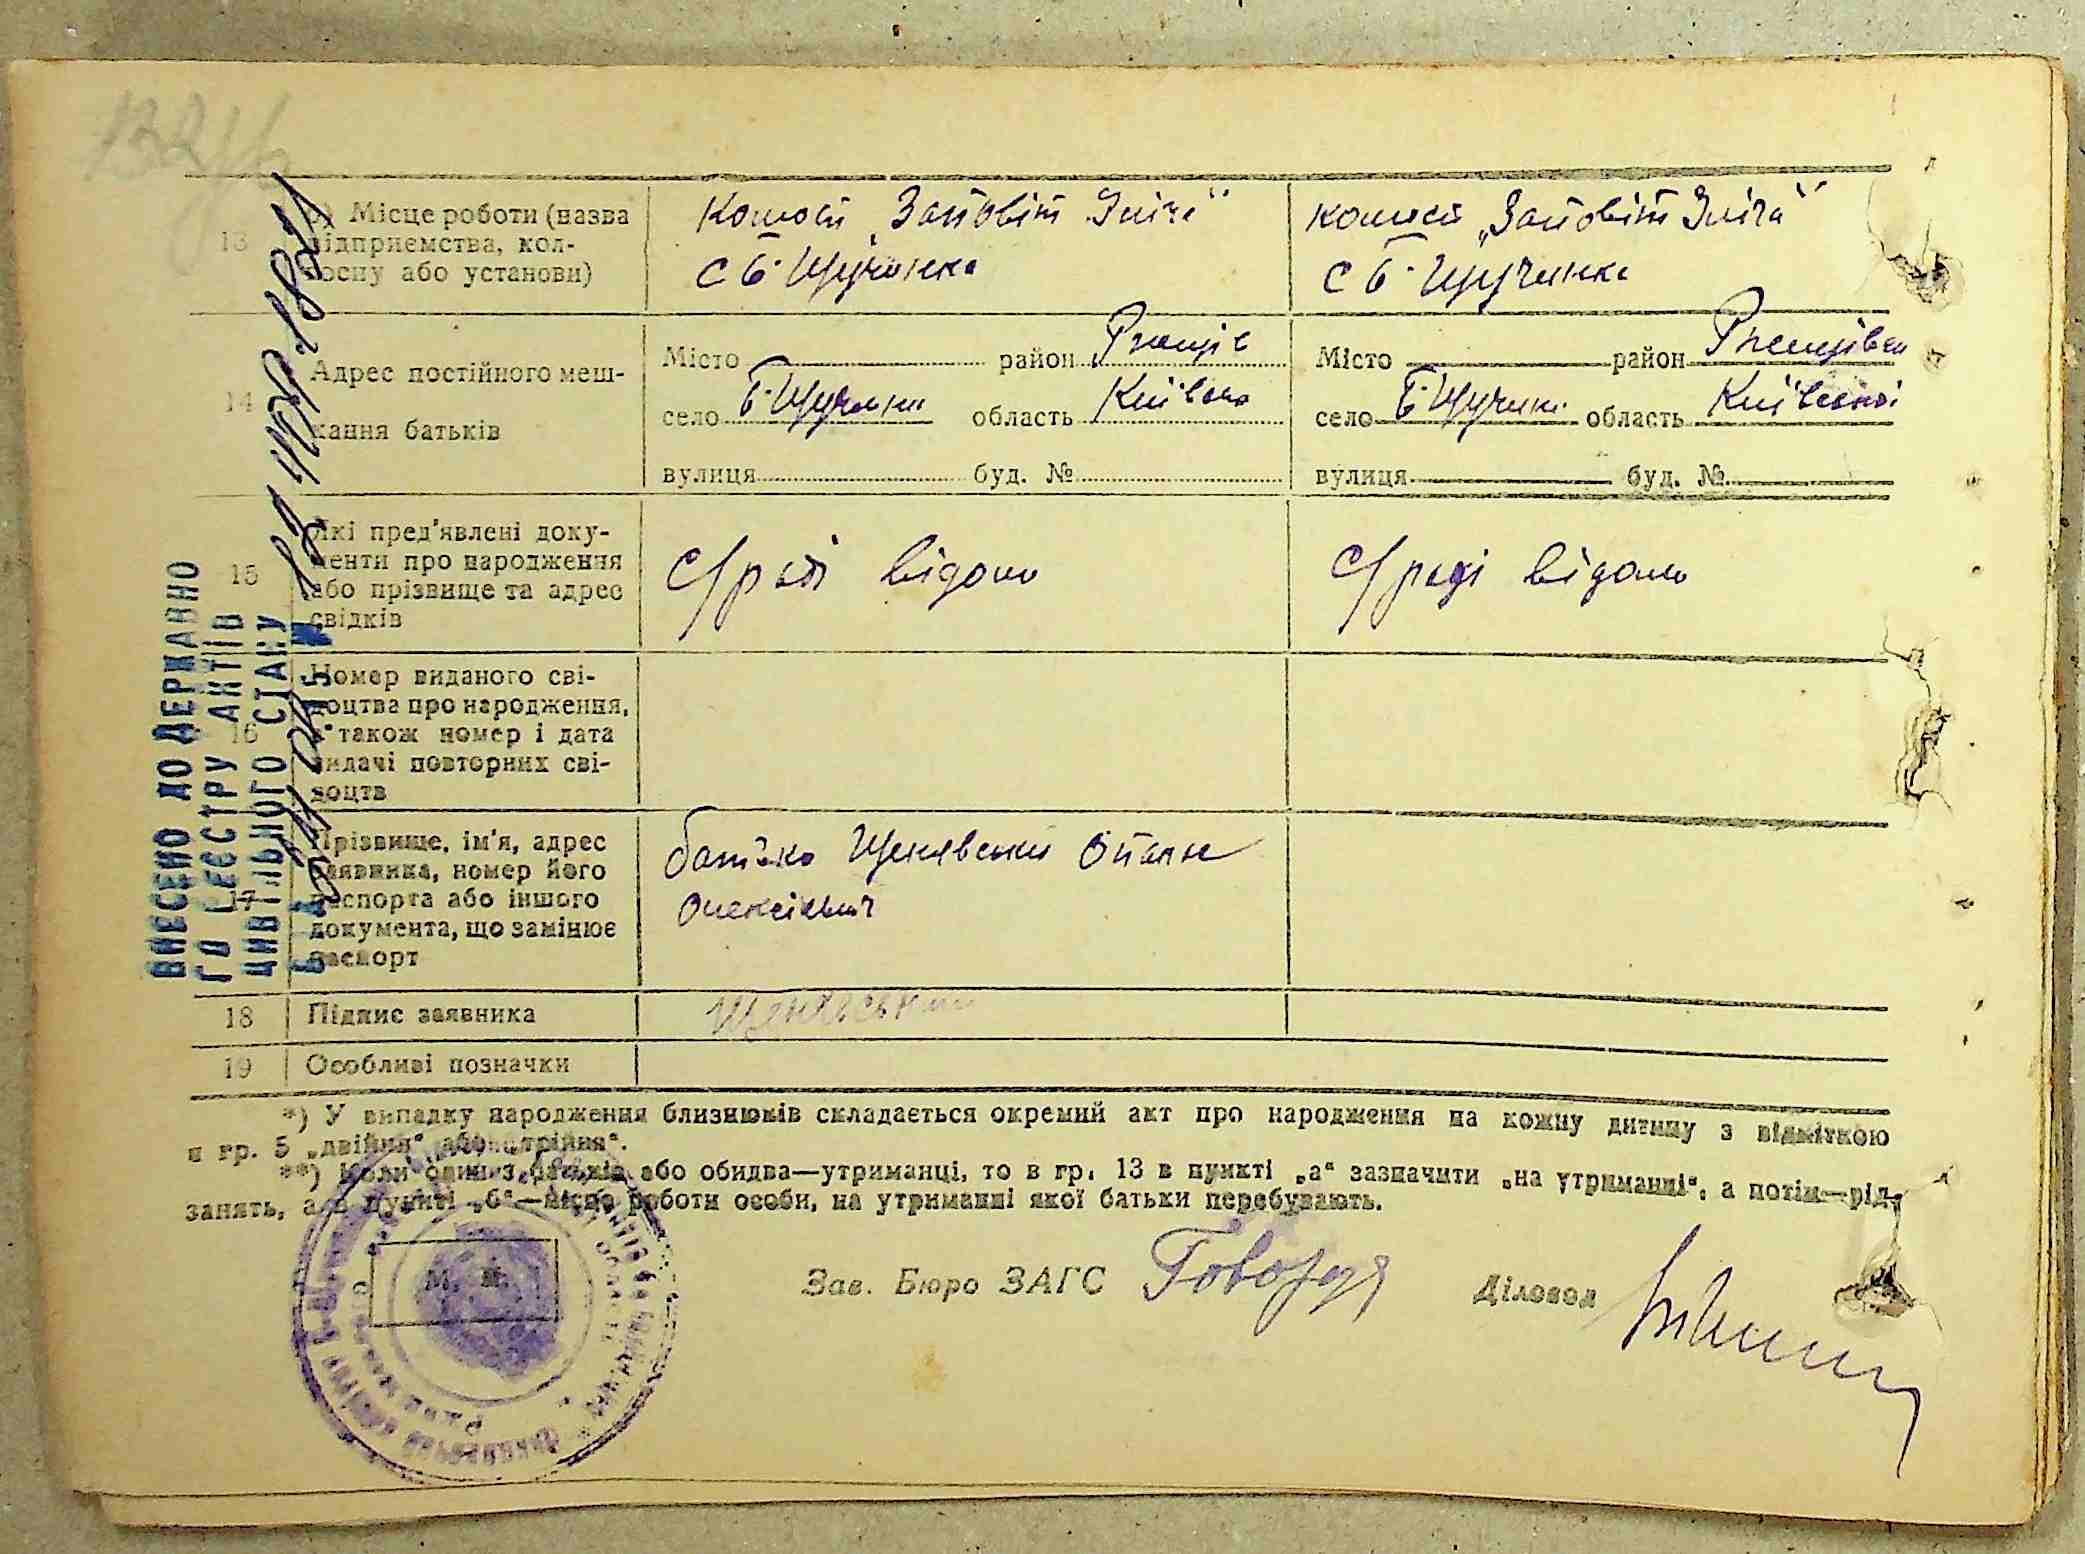 132
13
б) Місце роботи (назва
підприємства, кол-
госпу або установи)
Колосп „Заповіт Ілліча"
с Б-Щучинка
колосп „Заповіт Ілліча"
с Б-Щучинка
14
Адрес постійного меш-
кання батьків
Місто район Ржищів
село Б-Щучинк область Київська
вулиця буд. №
Місто район Ржищівськ
село Б-Щучинк область Київської
вулиця буд. №
15
Які пред'явлені доку-
менти про народження
або прізвище та адрес
свідків
С/раді відомо
С/раді відомо
16
Номер виданого сві-
доцтва про народження,
а також номер і дата
видачі повторних сві-
доцтв
17
Прізвище, ім'я, адрес
заявника, номер його
паспорта або іншого
документа, що замінює
паспорт
батько Щенявський Опанас
Олексієвич
18
Підпис заявника
Щенявський
19
Особливі позначки
ВНЕСЕНО ДО ДЕРЖАВНО
ГО РЕЄСТРУ АКТІВ
ЦИВІЛЬНОГО СТАНУ
*) У випадку народження близнюків складається окремий акт про народження на кожну дитину з відміткою
в гр. 5 „двійня" або „трійня".
**) Коли один з батьків або обидва—утриманці, то в гр. 13 в пункті „а" зазначити „на утриманні", а потім—рід
занять, а в пункті „б"—місце роботи особи, на утриманні якої батьки перебувають.
М. П.
Зав. Бюро ЗАГС
Діловод